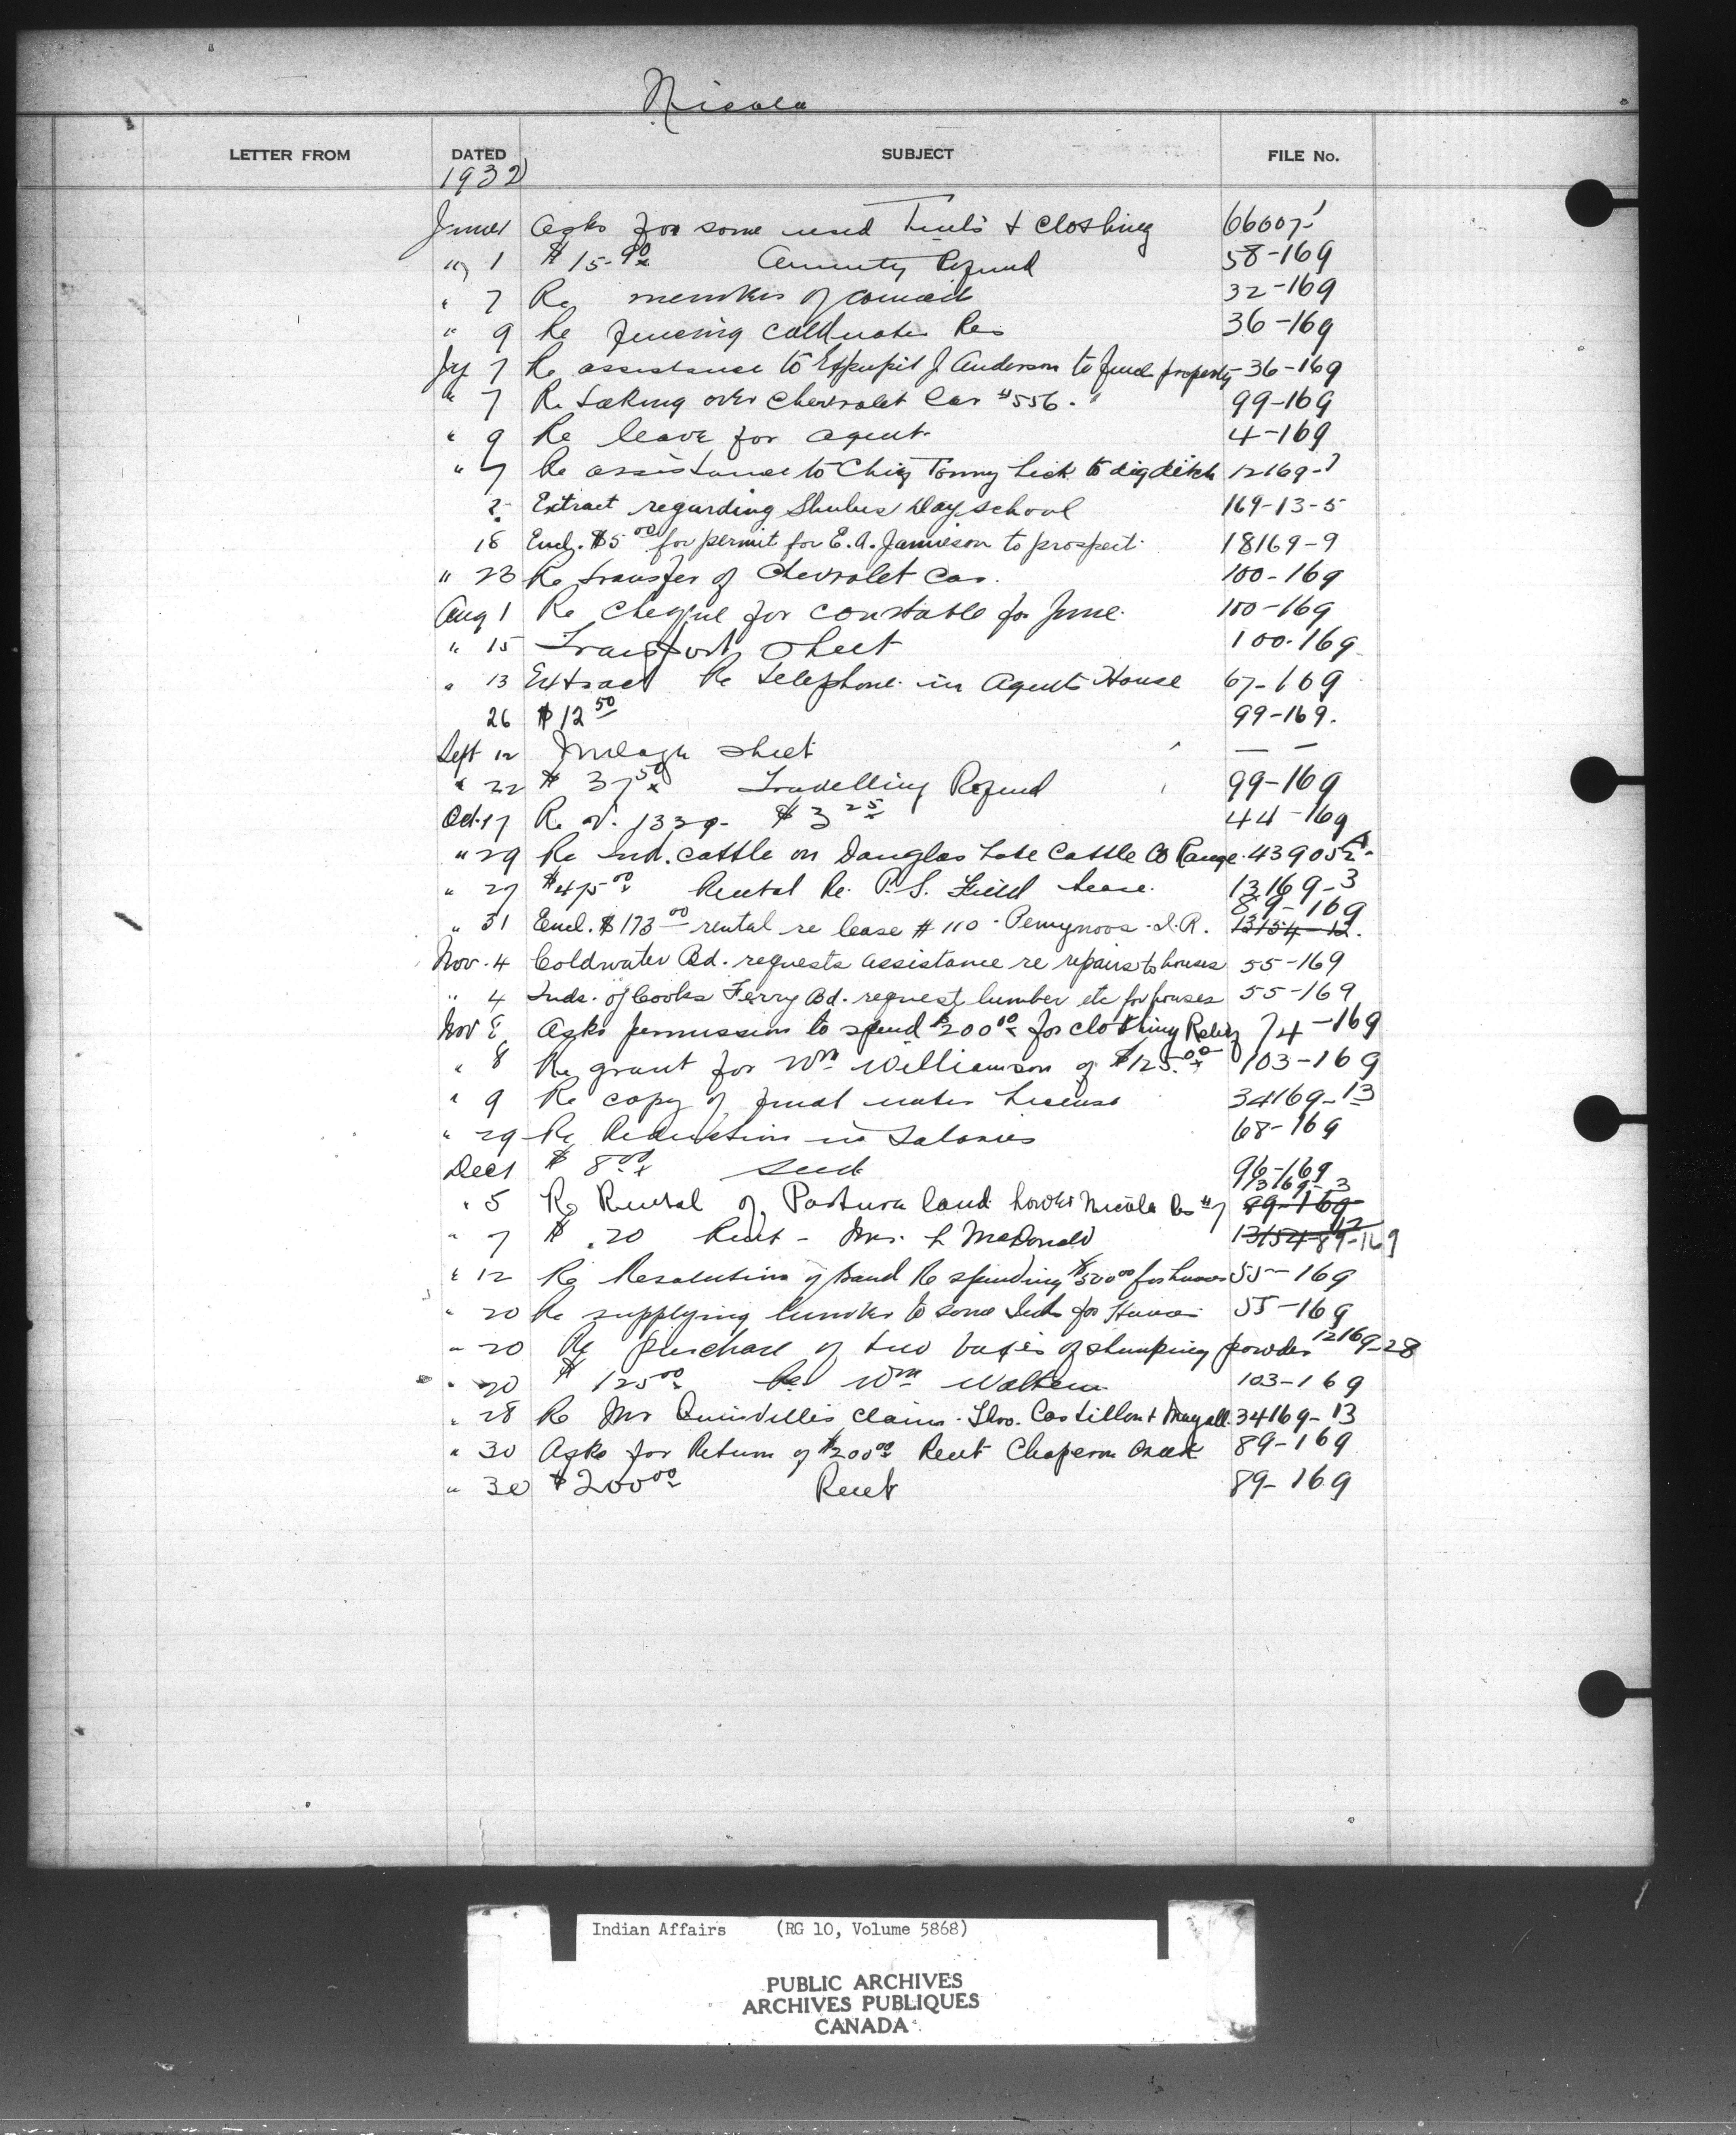 Nicola
LETTER FROM DATED SUBJECT FILE No.
1932
June Asks for some used Tents + Clothing 66007-1
" 1 $15.90 Annuity Refund 58-169
" 7 Re members of council 32-169
" 9 Re fencing Coldwater Res 36-169
Jy 7 Re assistance to Expupil J Anderson to fence property 36-169
" 7 Re taking over Chevrolet Car #556. 99-169
" 9 Re leave for agent 4-169
" 7 Re assistance to Chief Tommy Lick to dig ditch 12169-
2 Extract regarding Shulus Day school 169-13-5
18 Encl. $5 00 for permit for E. A. Jamieson to prospect 18169-9
" 23 Re transfer of Chevrolet Car. 100-169
Aug 1 Re Cheque for constable for June. 100-169
" 15 Transport Sheet 100-169
" 13 Extract Re telephone in Agents House 67-169
26 $12 50 99-169.
Sept 12 Mileage Sheet — —
" 22 $ 37 50 Travelling Refund 99-169
Oct 17 Re V. 1339- $3 25 44-169
" 29 Re Ind. cattle on Douglas Lake Cattle Co Range. 43905
" 27 $475 00 Rental Re. P. S. Field Lease. 13169-3
89-169
" 31 Encl. $173 00 rental re lease #110 - I.R. 13154-12.
Nov. 4 Coldwater Bd. requests assistance re repairs to houses 55-169
" 4 Inds. of Cooks Ferry Bd. request lumber etc for houses 55-169
Nov 8 Asks permission to spend $200 00 for clothing Relief 74-169
" 8 Re grant for Wm Williamson of $125.00 103-169
" 9 Re copy of final water License 34169-13
" 29 Re Reduction in Salaries 68-169
Dec 1 $ 8 00 seed 96-169
13169-3
" 5 Re Rental of Pasture land Lower Nicola Res #7 89-169
" 7 $ .20 Rent - Mrs. L McDonald 13154-12 89-169
" 12 Re Resolution of Band Re spending $500 00 for houses 55-169
" 20 Re supplying lumber to some Inds for Houses 55-169
" 20 Re purchase of two boxes of stumping powder 12169-28
" 20 $ 125 00 Re Wm 103-169
" 28 Re Mr Quinvilles claim - Thos. Castillon + Mayall. 34169-13
" 30 Asks for Return of $200 00 Rent Chaperon Creek 89-169
" 30 $200 00 Rent 89-169
Indian Affairs (RG 10, Volume 5868)
PUBLIC ARCHIVES
ARCHIVES PUBLIQUES
CANADA